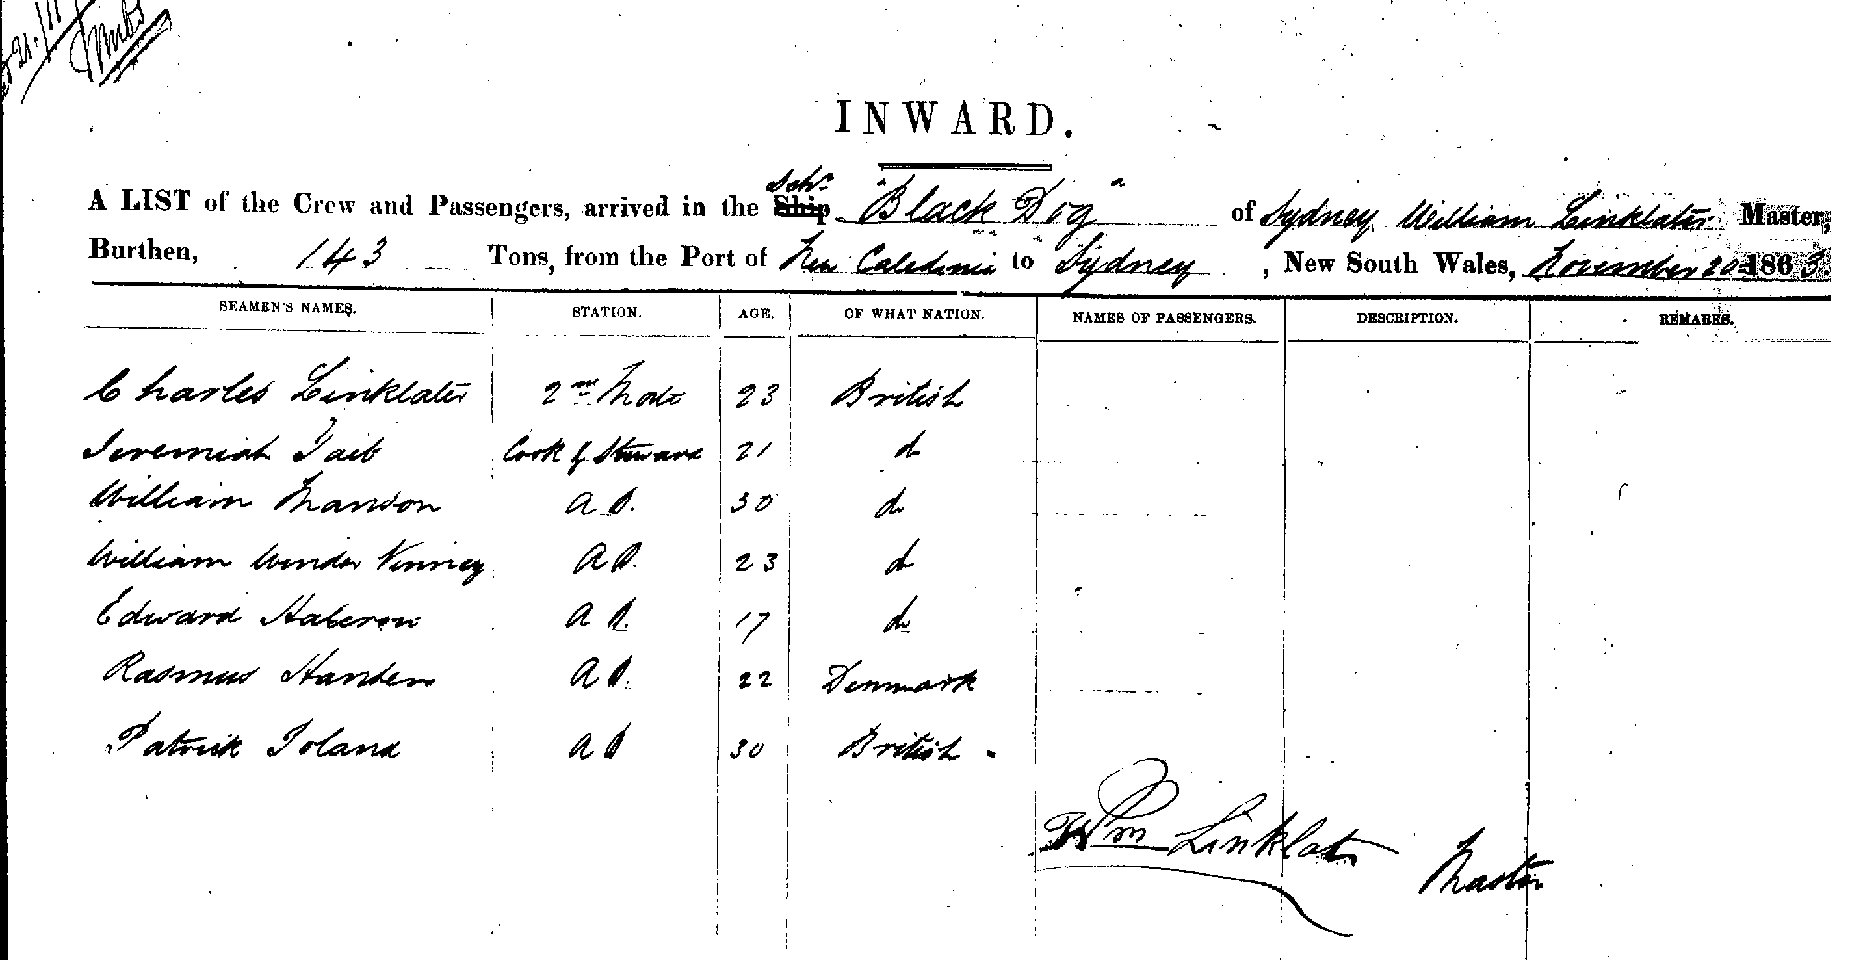 21/11
INWARD.
A LIST of the Crew and Passengers, arrived in the Ship Schr "Black Dog" of Sydney William Linklater Master,
Burthen, 143 Tons, from the Port of New Caledonia to Sydney, New South Wales, November 20 1863.
SEAMEN'S NAMES. STATION. AGE. OF WHAT NATION. NAMES OF PASSENGERS. DESCRIPTION. REMARKS.
Charles Linklater 2nd Mate 23 British
Jeremiah Tait Cook & Steward 21 do
William Manson AB. 30 do
William Winder Vinney AB. 23 do
Edward AB. 17 do
Rasmus Hansen AB. 22 Denmark
Patrick Toland AB 30 British
Wm Linklater Master